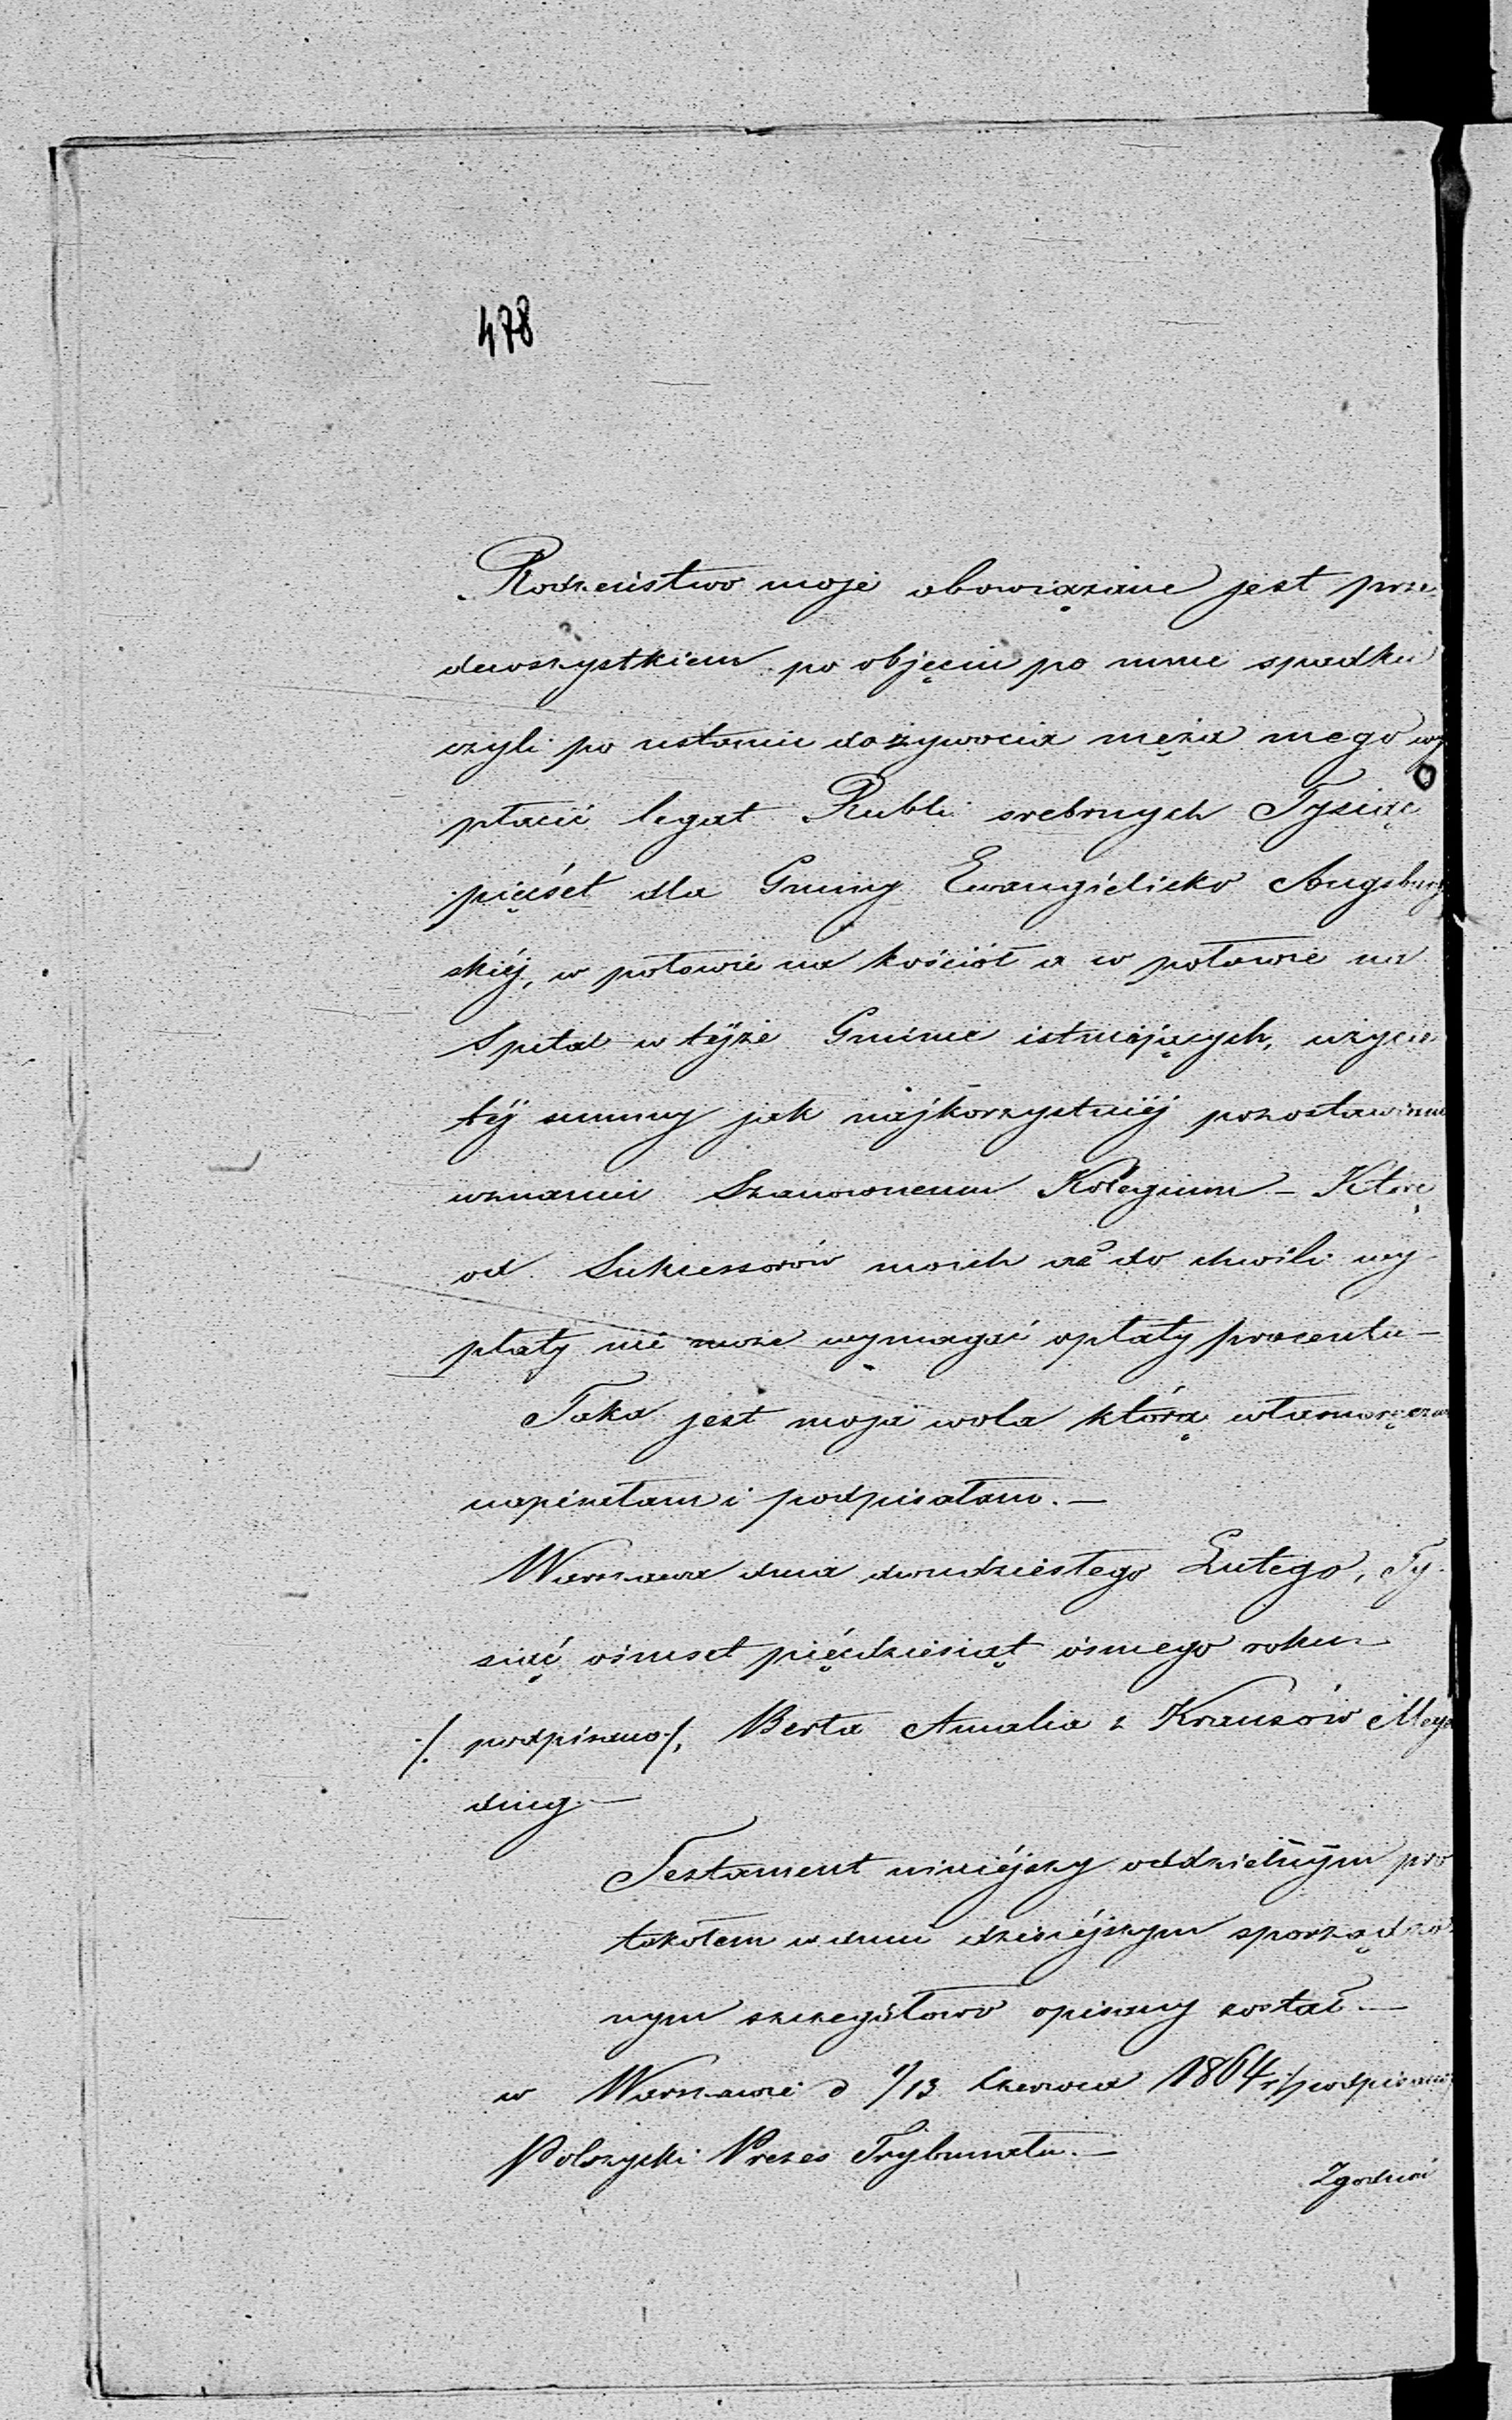 478
Rodzeństwo moje obowiązane jest prze
dewszystkiem po objęciu po mnie spadku
czyli po ustaniu dożywocia męża mego wy
płacić legat Rubli srebrnych Tysiąc
pięćset dla Gminy Ewangielicko Augsburg
skiéj, w połowie na kościół a w połowie na
Szpital w téjże Gminie istniejących, użycie
téj summy jak najkorzystniéj pozostawiam
uznaniu Szanownemu Kolegium – Które
od Sukcessorów moich aż do chwili wy-
płaty nie może wymagać opłaty procentu –
Taka jest moja wola którą własnoręcznie
napisałam i podpisałam. –
Warszawa dnia dwudziestego Lutego, Ty-
siąć ośmset pięćdziesiąt ósmego roku
/. podpisano /. Berta Amalia z Krauzów Mey
ding –
Testament niniéjszy oddzielnym pro
tokołem w dniu dzisiéjszym sporządzo
nym szczegółowo opisany został. –
w Warszawie d 1/13 Czerwca 1864 r /podpisano
Prezes Trybunału. –
Zgodność